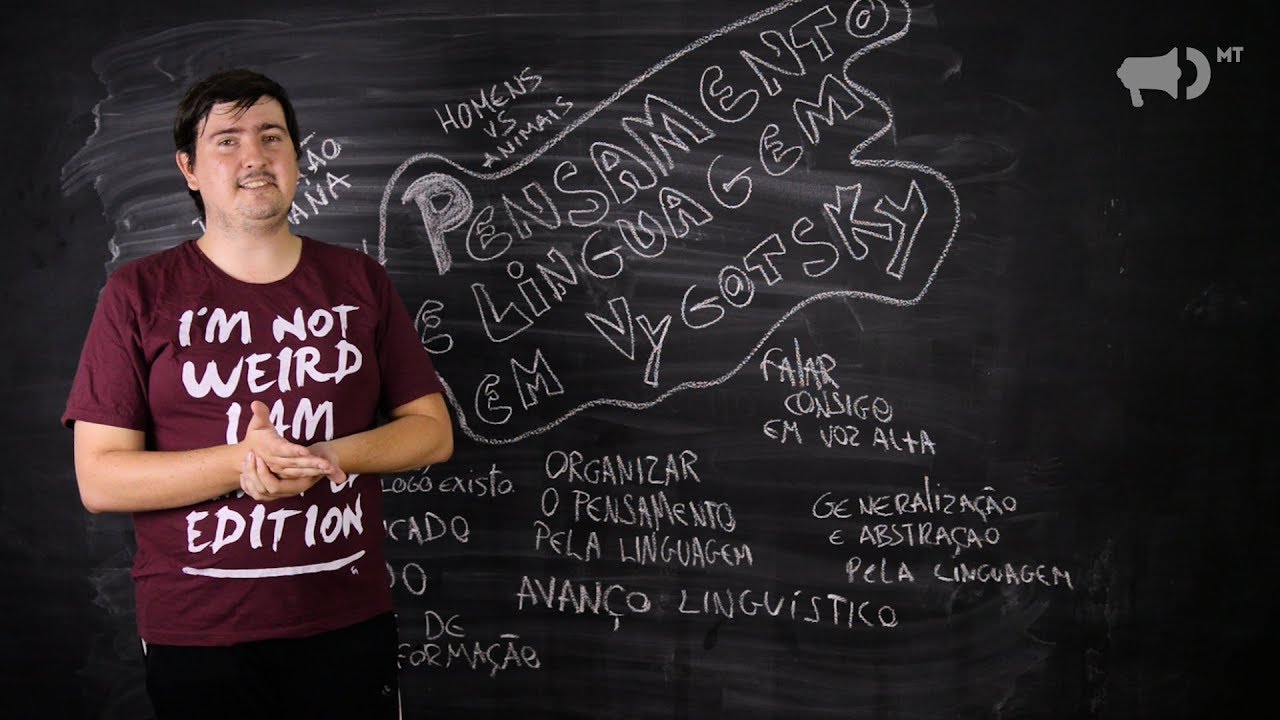 HOMENS
VS
ANIMAIS
PENSAMENTO
E LINGUAGEM
EM VYGOTSKY
ÃO
ANA
I'M NOT
WEIRD
I AM
EDITION
FALAR
CONSIGO
EM VOZ ALTA
LOGO EXISTO.
CADO
DO
DE
FORMAÇÃO
ORGANIZAR
O PENSAMENTO
PELA LINGUAGEM
AVANÇO LINGUÍSTICO
GENERALIZAÇÃO
E ABSTRAÇÃO
PELA LINGUAGEM
MT